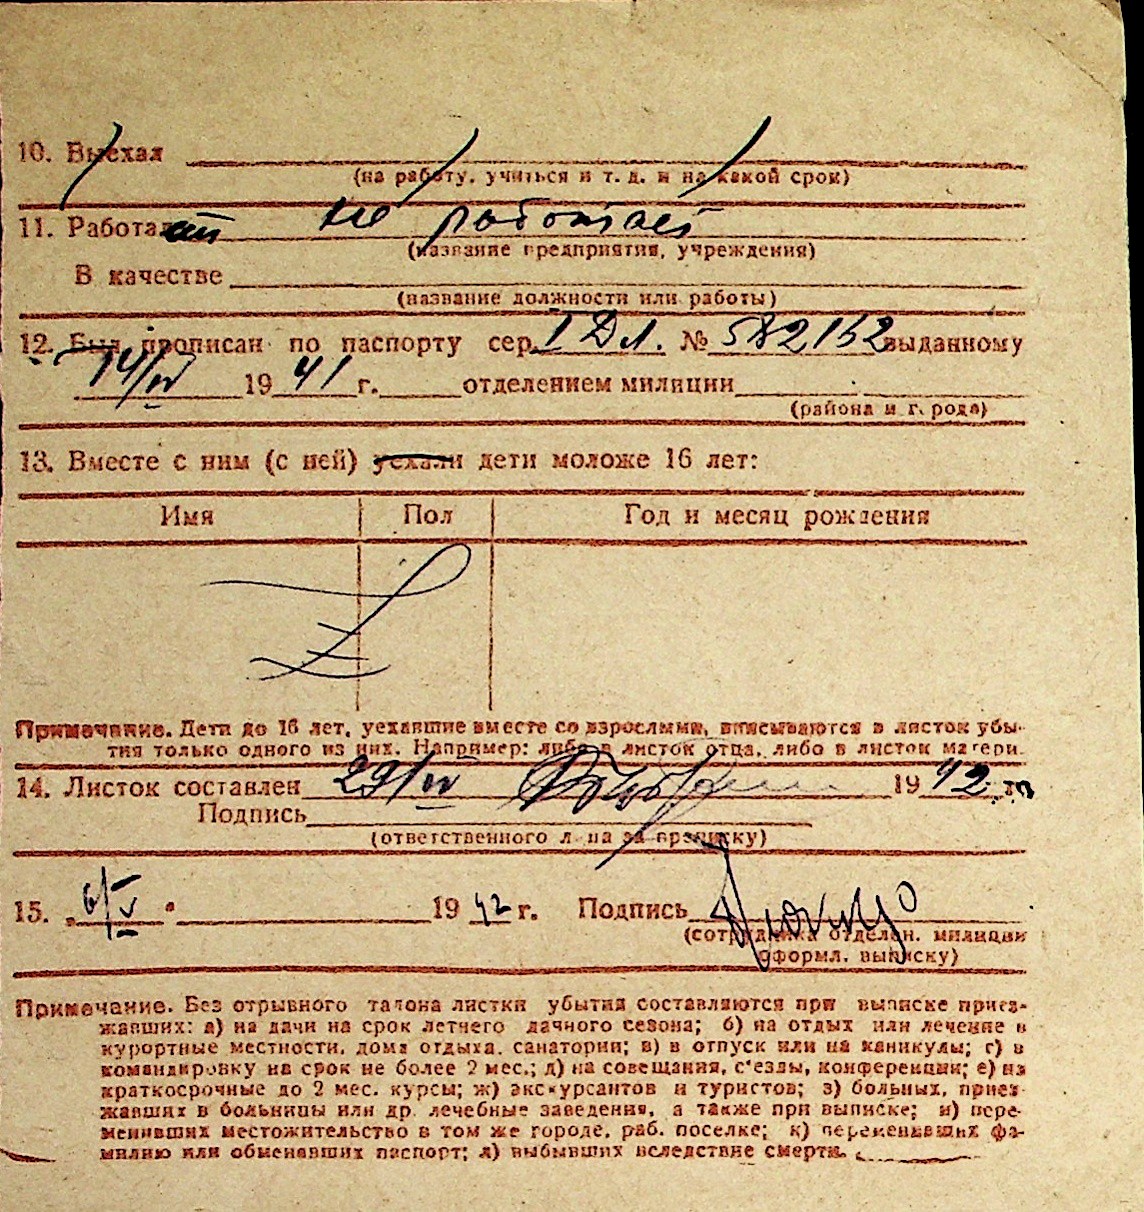 10. Выехал
(на работу, учиться и т. д. и на какой срок)
11. Работает не работает
(название предприятия, учреждения)
В качестве
(название должности или работы)
12. Был прописан по паспорту сер. I Дл. № 582152 выданному
14/IV 1941 г. отделением милиции
(района и г. рода)
13. Вместе с ним (с ней) уехали дети моложе 16 лет:
Имя Пол Год и месяц рождения
Примечание. Дети до 16 лет, уехавшие вместе со взрослыми, вписываются в листок убы-
тия только одного из них. Например: либо в листок отца, либо в листок матери.
14. Листок составлен 29/IV 1942 г.
Подпись
(ответственного л на за прописку)
15. „6/V" 1942 г. Подпись
(сотрудника отделен. милиции
оформл. выписку)
Примечание. Без отрывного талона листки убытия составляются при выписке приез-
жавших: а) на дачи на срок летнего дачного сезона; б) на отдых или лечение в
курортные местности, дома отдыха, санатории; в) в отпуск или на каникулы; г) в
командировку на срок не более 2 мес.; д) на совещания, с'езды, конференции; е) на
краткосрочные до 2 мес. курсы; ж) экскурсантов и туристов; з) больных, приез-
жавших в больницы или др. лечебные заведения, а также при выписке; и) пере-
менивших местожительство в том же городе, раб. поселке; к) переменивших фа-
милию или обменявших паспорт; л) выбывших вследствие смерти.